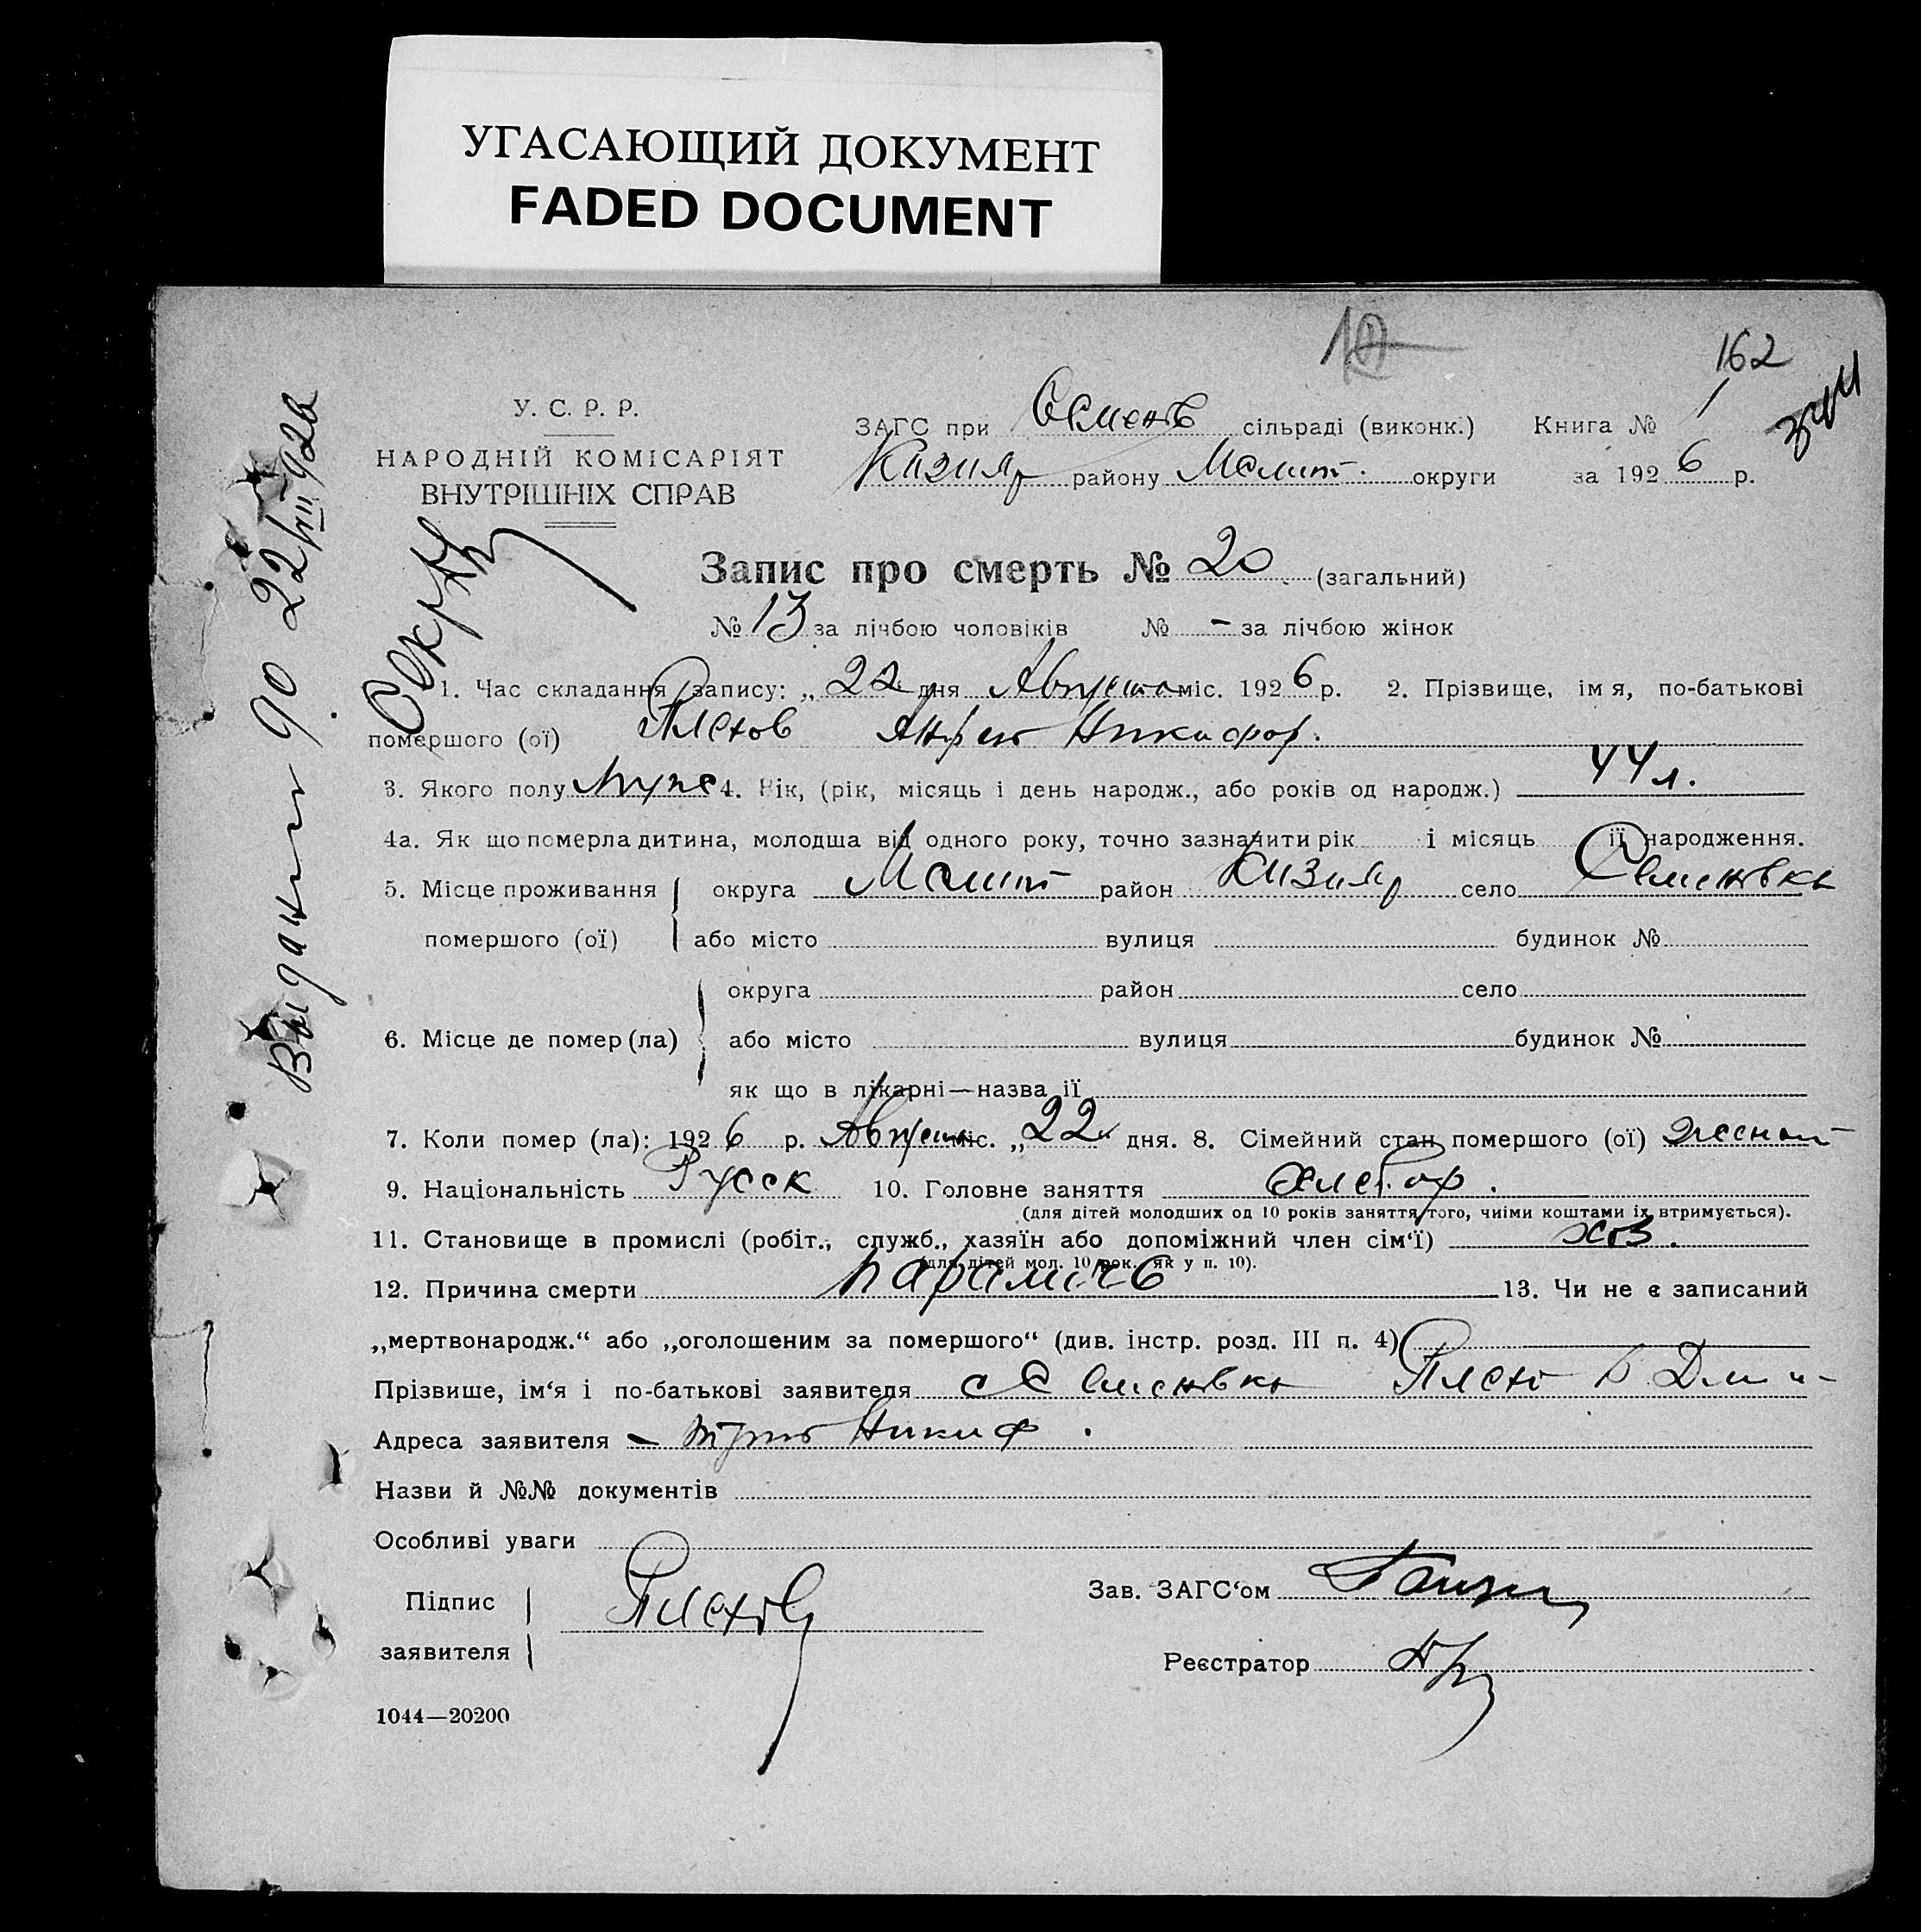 УГАСАЮЩИЙ ДОКУМЕНТ
FADED DOCUMENT
162
У. С. Р. Р.
НАРОДНІЙ КОМІСАРІЯТ
ВНУТРІШНІХ СПРАВ
ЗАГС при Семенов сільраді (виконк.) Книга № 1
Кизияр району Мелит. округи за 1926 р.
Запис про смерть № 20 (загальний)
№ 13 за лічбою чоловіків № - за лічбою жінок
1. Час складання запису: „ 22 дня Августа міс. 1926 р. 2. Прізвище, імя, по-батькові
помершого (ої) Плехов Андрей Никифор.
3. Якого полу Мужс 4. Рік, (рік, місяць і день народж., або років од народж.) 44 л.
4а. Як що померла дитина, молодша від одного року, точно зазначити рік і місяць її народження.
5. Місце проживання округа Мелит район Кизияр село Семеновка
помершого (ої) або місто вулиця будинок №
округа район село
6. Місце де помер (ла) або місто вулиця будинок №
як що в лікарні—назва її
7. Коли помер (ла): 1926 р. Августа міс. „22" дня. 8. Сімейний стан помершого (ої) женат
9. Національність Русск 10. Головне заняття Хлебор.
(для дітей молодших од 10 років заняття того, чиїми коштами їх втримується).
11. Становище в промислі (робіт., служб., хазяїн або допоміжний член сім‘ї) хоз.
(для дітей мол. 10 рок. як у п. 10).
12. Причина смерти паралич 13. Чи не є записаний
„мертвонародж.“ або „оголошеним за помершого“ (див. інстр. розд. III п. 4)
Прізвише, ім‘я і по-батькові заявителя с Семеновка Плехов Дми-
Адреса заявителя - трий Никиф.
Назви й №№ документів
Особливі уваги
Підпис
заявителя Плехов
Зав. ЗАГС‘ом
Реєстратор
1044—20200